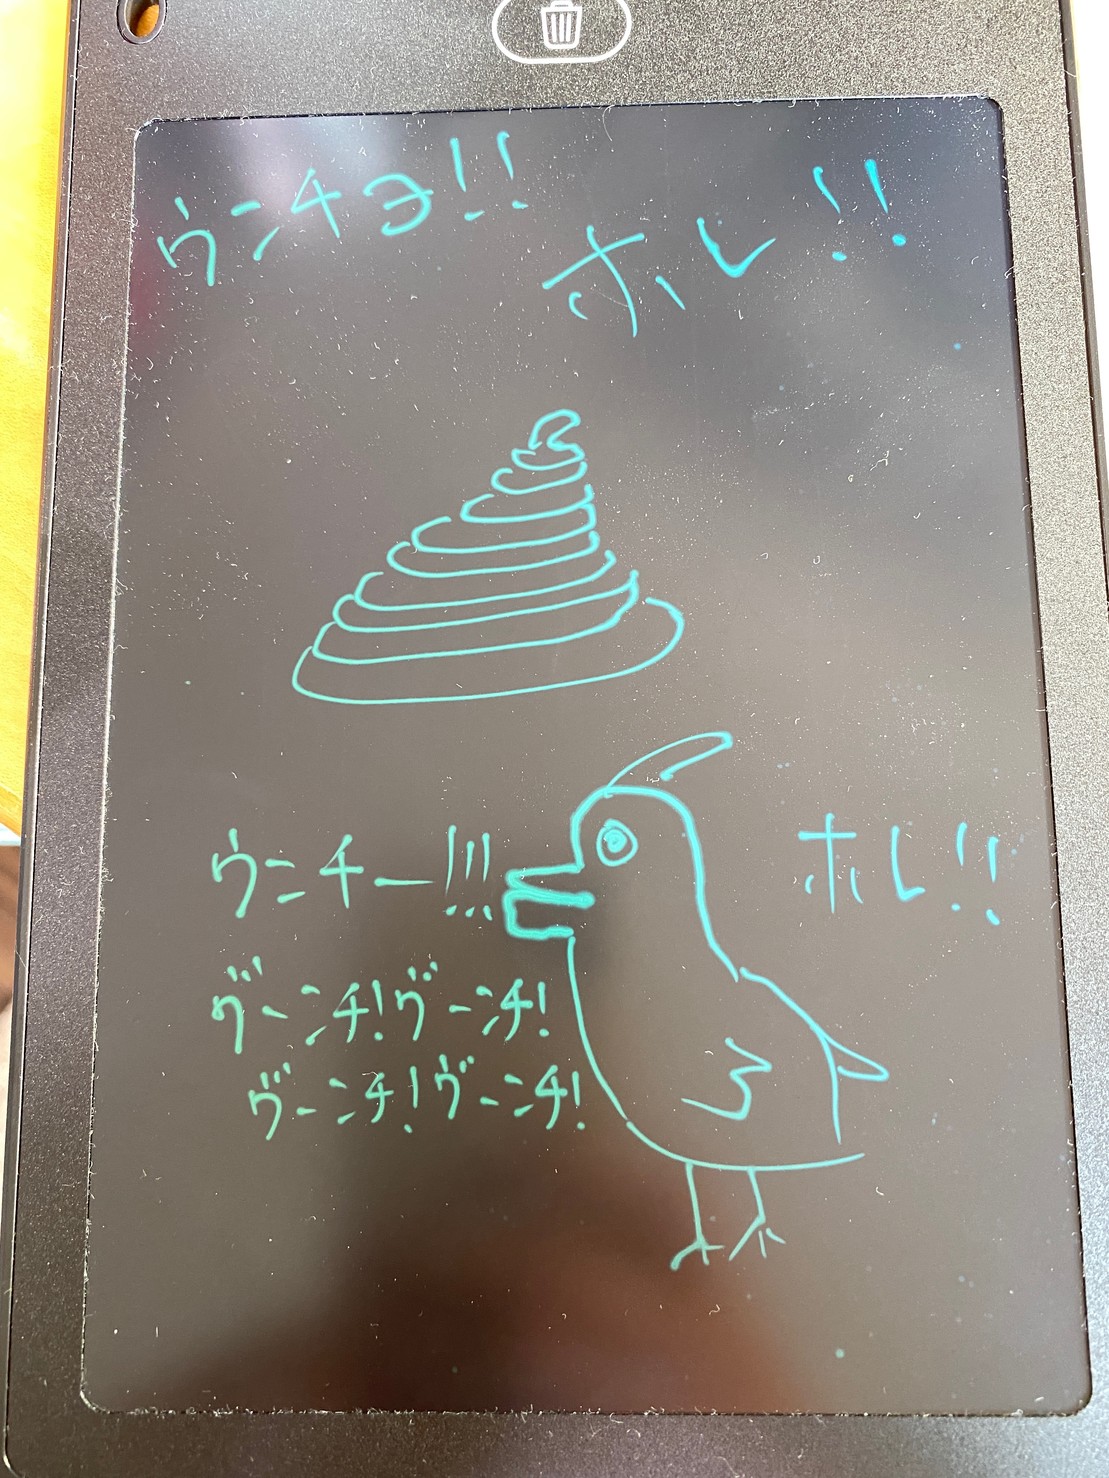 ウンチョ!!
ホレ!!
ウンチー!!!
ホレ!!
ヴーンチ!ヴーンチ!
ヴーンチ!ヴーンチ!